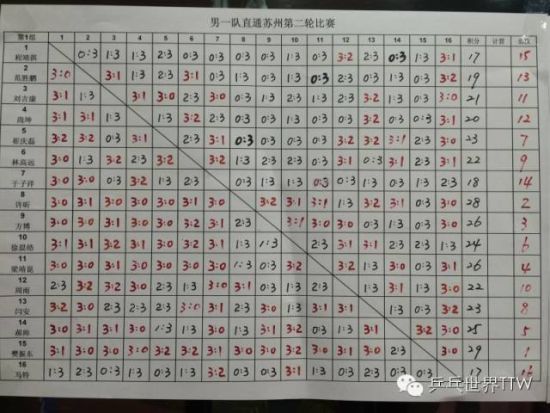 男一队直通苏州第二轮比赛
第1组 1 2 3 4 5 6 7 8 9 10 11 12 13 14 15 16 积分 名次
1 程靖淇 0:3 1:3 1:3 2:3 0:3 0:3 0:3 0:3 1:3 0:3 3:2 2:3 0:3 0:3 3:1 17 15
2 范胜鹏 3:0 3:1 1:3 2:3 3:1 0:3 1:3 0:3 1:3 0:3 2:3 0:3 1:3 0:3 3:2 19 13
3 刘吉康 3:1 1:3 3:1 3:0 2:3 3:0 0:3 1:3 2:3 0:3 1:3 3:2 1:3 0:3 3:0 21 11
4 尚坤 3:1 3:1 1:3 1:3 3:2 2:3 0:3 0:3 2:3 0:3 2:3 3:2 0:3 1:3 3:1 20 12
5 崔庆磊 3:2 3:2 0:3 3:1 2:3 3:1 0:3 0:3 0:3 0:3 3:2 3:2 3:1 1:3 3:0 23 7
6 林高远 3:0 1:3 3:2 2:3 3:2 3:2 1:3 0:3 1:3 2:3 3:1 0:3 3:1 1:3 3:1 22 9
7 于子洋 3:0 3:0 0:3 3:2 1:3 2:3 1:3 0:3 1:3 0:3 0:3 1:3 0:3 1:3 2:3 18 14
8 许昕 3:0 3:1 3:0 3:0 3:0 3:1 3:1 3:2 3:1 3:1 1:3 3:2 3:1 0:3 3:1 28 2
9 方博 3:0 3:0 3:1 3:0 3:0 3:0 3:0 2:3 3:1 3:0 0:3 3:1 1:3 0:3 3:0 26 3
10 徐晨皓 3:1 3:1 3:2 3:2 3:0 3:1 3:1 1:3 1:3 2:3 3:1 3:1 3:2 1:3 24 6
11 梁靖崑 3:0 3:0 3:0 3:0 3:0 3:2 3:0 1:3 0:3 3:2 3:2 1:3 3:0 1:3 3:1 26 4
12 周雨 2:3 3:2 3:1 3:2 2:3 1:3 3:0 3:1 3:0 1:3 2:3 1:3 1:3 0:3 3:1 22 10
13 闫安 3:2 3:0 2:3 2:3 2:3 3:0 3:1 2:3 1:3 1:3 3:1 3:1 1:3 0:3 3:2 23 8
14 郝帅 3:0 3:1 3:1 3:0 1:3 1:3 3:0 1:3 3:1 2:3 0:3 3:1 3:1 3:2 3:0 25 5
15 樊振东 3:1 3:0 3:0 3:1 3:1 3:1 3:1 3:0 3:0 3:1 3:1 3:0 3:0 2:3 3:0 29 1
16 马特 1:3 2:3 0:3 1:3 0:3 1:3 3:2 1:3 0:3 1:3 1:3 2:3 0:3 0:3 17 16
乒乓世界TTW